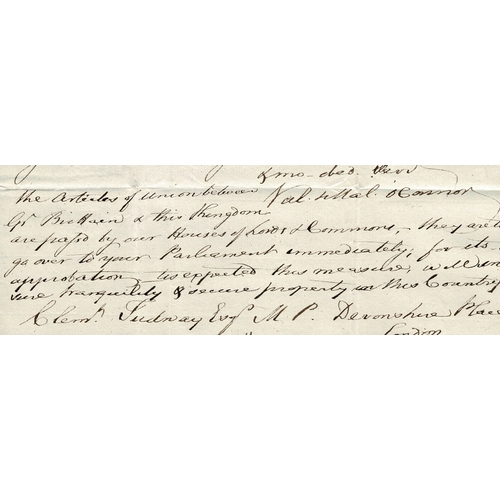 & mo- obed. Serv
the Articles of Union between Val. & Mal. O Connor
Gt Brittain & this Kingdom
are pass'd by our Houses of Lords & Commons, they are to
go over to your Parliament immediately, for its
approbation - tis expected this measure will in
sure tranquility & secure property in this Country
Clemt. Tudway Esqr. M P. Devonshire Place
London